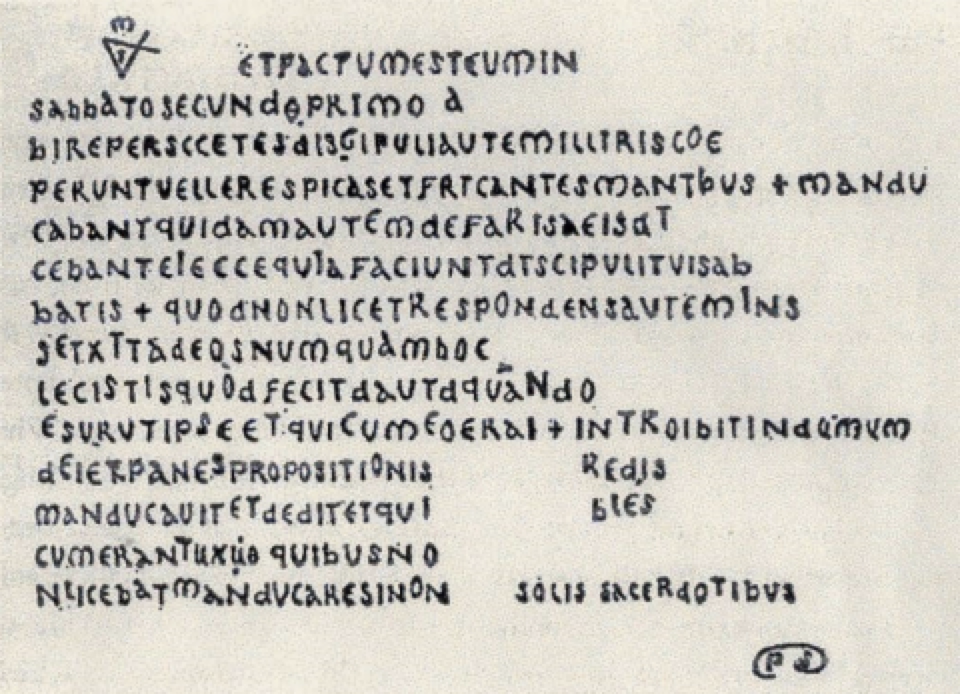 ETFACTUMESTEUMIN
SABBATOSECUNDOPRIMO A
BIREPERSCCETESDISGIPULIAUTEMILLITRISCOE
PERUNTVELLERESPICASETFRICANTESMANTBUS + MANDU
CABANTQUIDAMAUTEMDEFARISAEISAT
CEBANTELECCEQUIAFACIUNTDTSCIPULITVISAB
BATIS + QUODNONLICETRESPONDENSAUTEMINS
SETXTTADEOSNUMQUAMBOC
LECISTISQUODFECITDAUTDQUANDO
ESURUTIPSEETQUICUMEOERAI + INTROIBITINDOMUM
DEIETPANESPROPOSITIONIS REDIS
MANDUCAUITETDEDITETQUI BLES
CUMERANTUXUO QUIBUSNO
NLICEBATMANDUCARESINON SOLIS SACERDOTIBUS
PS